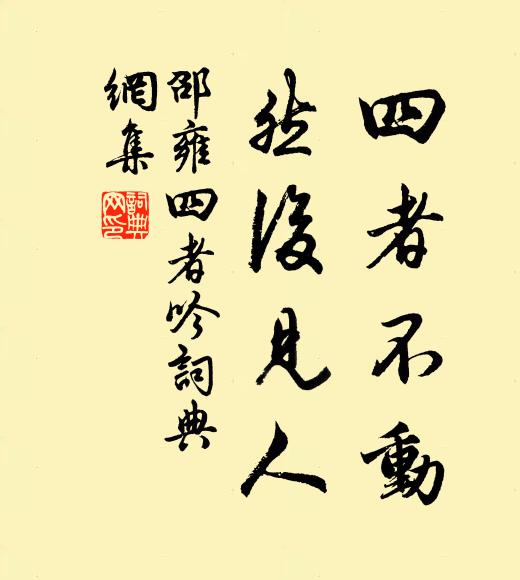 四者不動
然後見人
邵雍四者吟詞典
網集
詞典網印